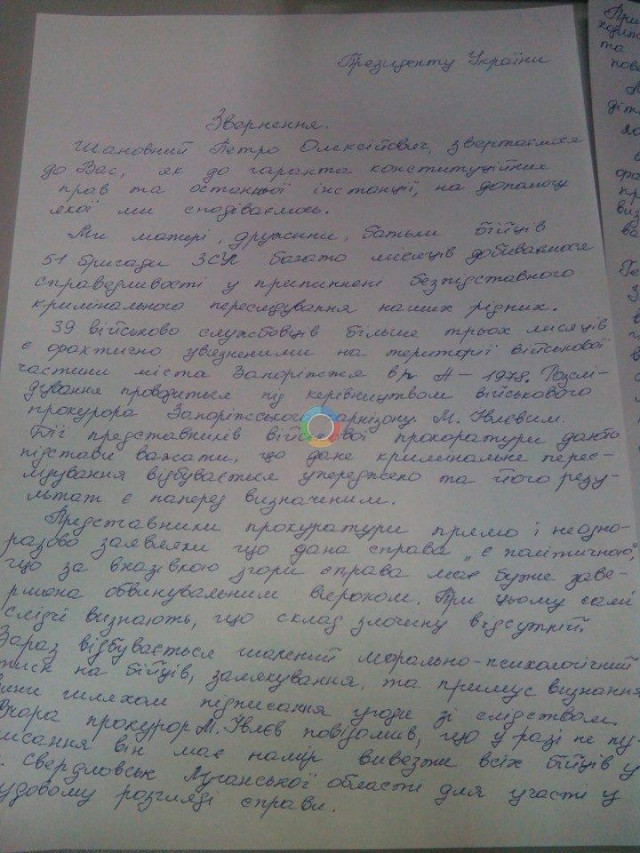 Президенту України
Звернення.
Шановний Петро Олексійович, звертаємося
до Вас, як до гаранта конституційних
прав та останньої інстанції, на допомогу
якої ми сподіваємось.
Ми матері, дружини, батьки бійців
51 бригади ЗСУ багато місяців добиваємося
справедливості у припиненні безпідставного
кримінального переслідування наших рідних.
39 військово службовців більше трьох місяців
є фактично увязненими на території військової
частини міста Запоріжжя в/ч А-1978. Розслі-
дування проводиться під керівництвом військового
прокурора Запоріжського гарнізону М. Івлєвим.
Дії представників військової прокоратури дають
підстави вважати, що дане кримінальне перес-
лідування відбувається упереджено та його резу-
льтат є наперед визначеним.
Представники прокуратури прямо і неодно-
разово заявляли що дана справа "є політичною",
що за вказівкою згори справа має бути заве-
ршена обвинувальним вироком. При цьому самі
слідчі визнають, що склад злочину відсутній.
Зараз відбувається шалений морально-психологічний
тиск на бійців, залякування, та примус визнання
вини шляхом підписання угоди зі слідством.
Вчора прокурор М. Івлєв повідомив, що у разі не пі-
дписання він має намір вивезти всіх бійців у
м. Свердловськ Луганської області для участі у
судовому розгляді справи.